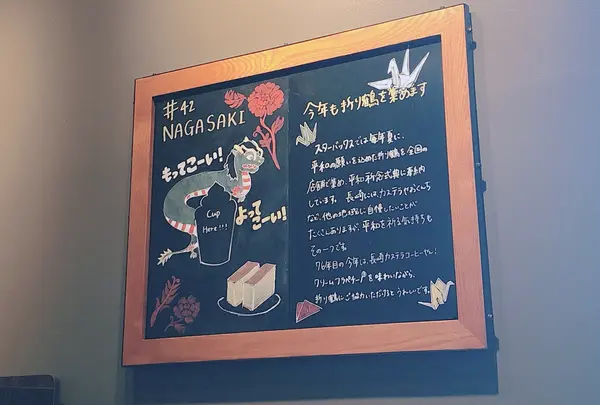 #42
NAGASAKI
もってこーい!
Cup
Here!!!
よって
こーい!
今年も折り鶴を集めます
スターバックスでは毎年夏に、
平和の願いを込めた折り鶴を全国の
店舗で集め、平和祈念式典に奉納
しています。長崎には、カステラやおくんち
など、他の地域に自慢したいことが
たくさんありますが、平和を祈る気持ちも
その一つです。
76年目の今年は、長崎カステラコーヒーやん!
クリームフラペチーノ®を味わいながら、
折り鶴にご協力いただけると うれしいです。